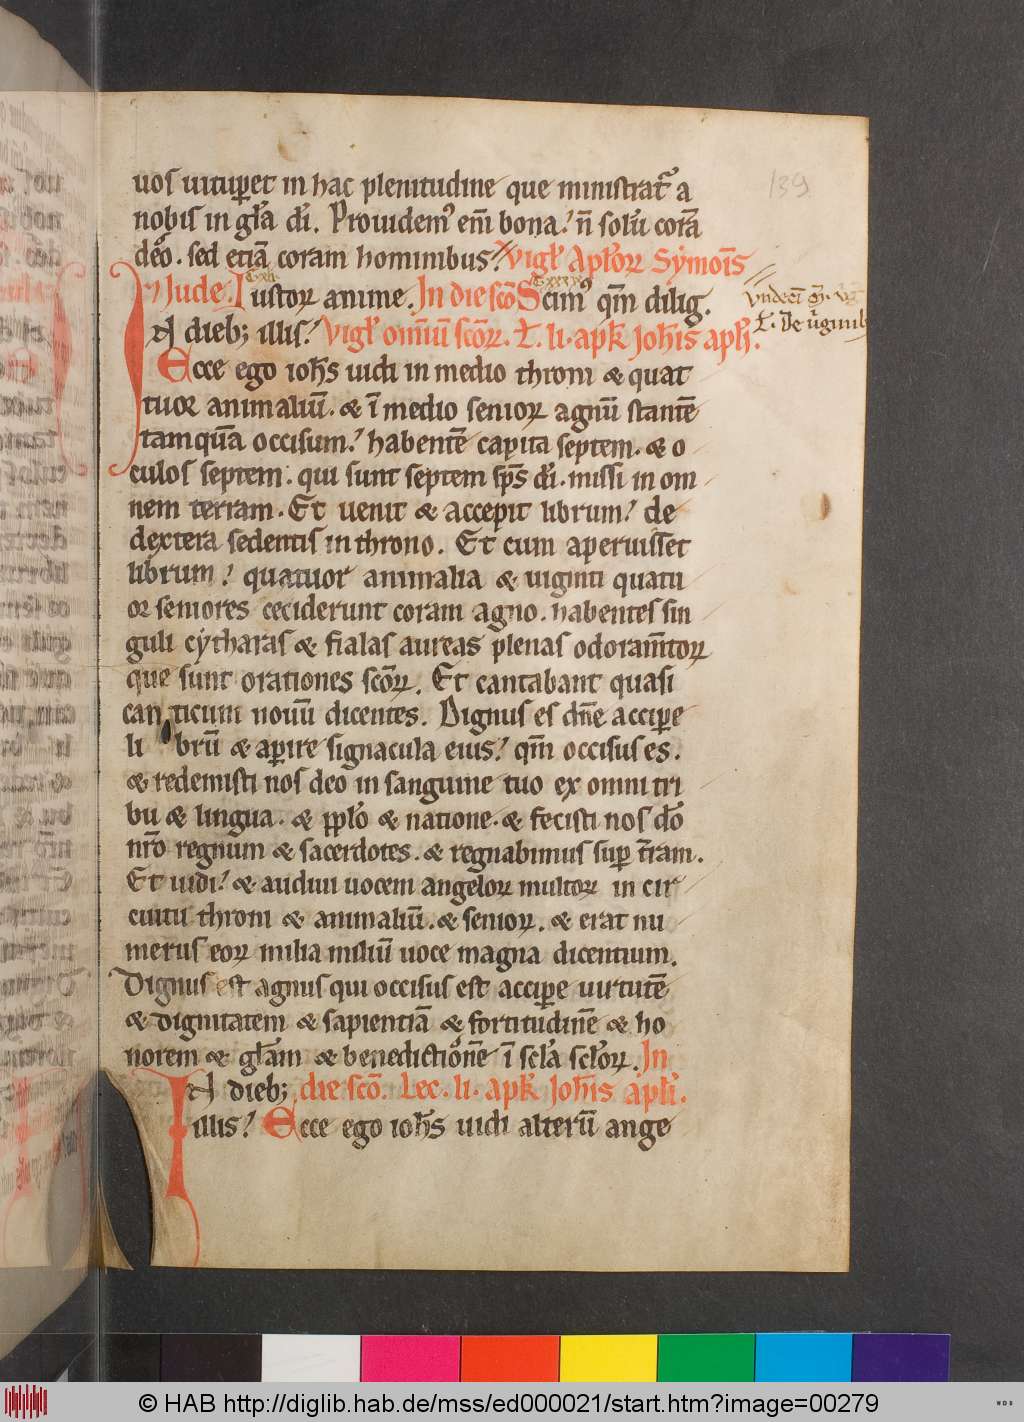 139
uos uituꝑet in hac plenitudine que ministrat᷒ a
nobis in gl̃a dı̃. Prouidem᷒ em̃ bona. n̄ solũ corã
deo. sed etiã coram hominibus. Vigl̃ Apl̃oꝝ Symoĩs
⁊ Jude. Iustoꝝ anime. In die sc̃o Scim᷒ qm̃ dilig.
In dieb; illis. Vigl̃ om̃iũ sc̃oꝝ. Ł. li. apk̃ Joh̃is apl̃.
Ecce ego ioh̃s uidi in medio throni & quat
tuor animaliũ. & ı̃ medio senioꝝ agnũ stantẽ
tamquã occisum. habentẽ capita septem. & o
culos septem. qui sunt septem sp̃s dı̃. missi in om
nem terram. Et uenit & accepit librum. de
dextera sedentis in throno. Et cum aperuisset
librum. quatuor animalia & uiginti quatu
or seniores ceciderunt coram agno. habentes sin
guli cytharas & fialas aureas plenas odoram̃toꝝ
que sunt orationes sc̃oꝝ. Et cantabant quasi
can ticum nouũ dicentes. Dignus es dñe acciꝑe
li brũ & aꝑire signacula eius. qm̃ occisus es.
& redemisti nos deo in sanguine tuo ex omni tri
bu & lingua. & pp̃lo & natione. & fecisti nos do
nr̃o regnum & sacerdotes. & regnabimus suꝑ tr̃am.
Et uidi. & audiui uocem angeloꝝ multoꝝ in cir
cuitu throni & animaliũ. & senioꝝ. & erat nu
merus eoꝝ milia miliũ uoce magna dicentium.
Dignus est agnus qui occisus est acciꝑe uirtutẽ
& dignitatem & sapientiã & fortitudinẽ & ho
norem & gl̃am & benedictionẽ ı̃ scl̃a scl̃oꝝ. In
In dieb; die sc̃o. Lec. li. apk̃ Joh̃is apl̃i.
illis. Ecce ego ioh̃s uidi alterũ ange
© HAB http://diglib.hab.de/mss/ed000021/start.htm?image=00279